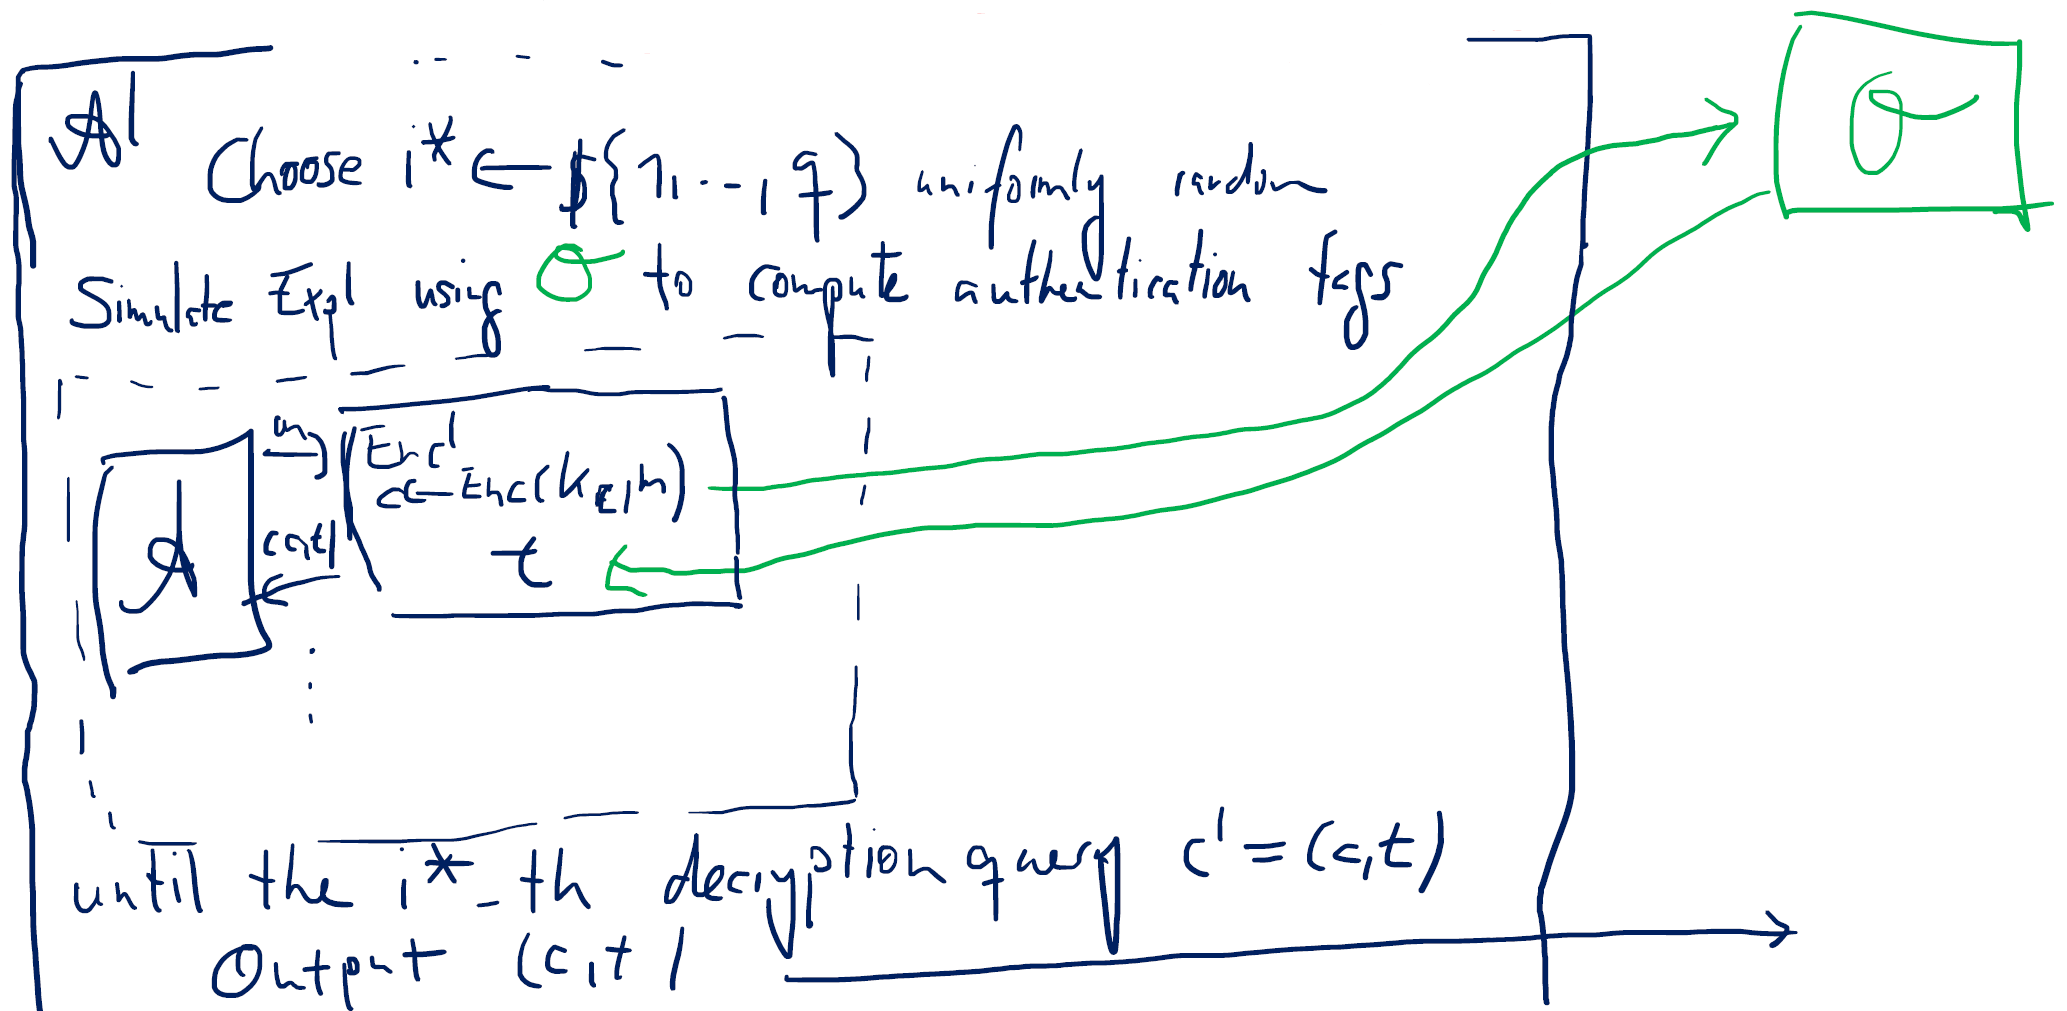 A'
Choose i* ← ${1, ..., q} uniformly random
σ
Simulate Exp1 using σ to compute authentication tags
m
Enc'
c ← Enc(k_E, m)
A
(c,t)
t
until the i*-th decryption query c' = (c,t)
Output (c,t)